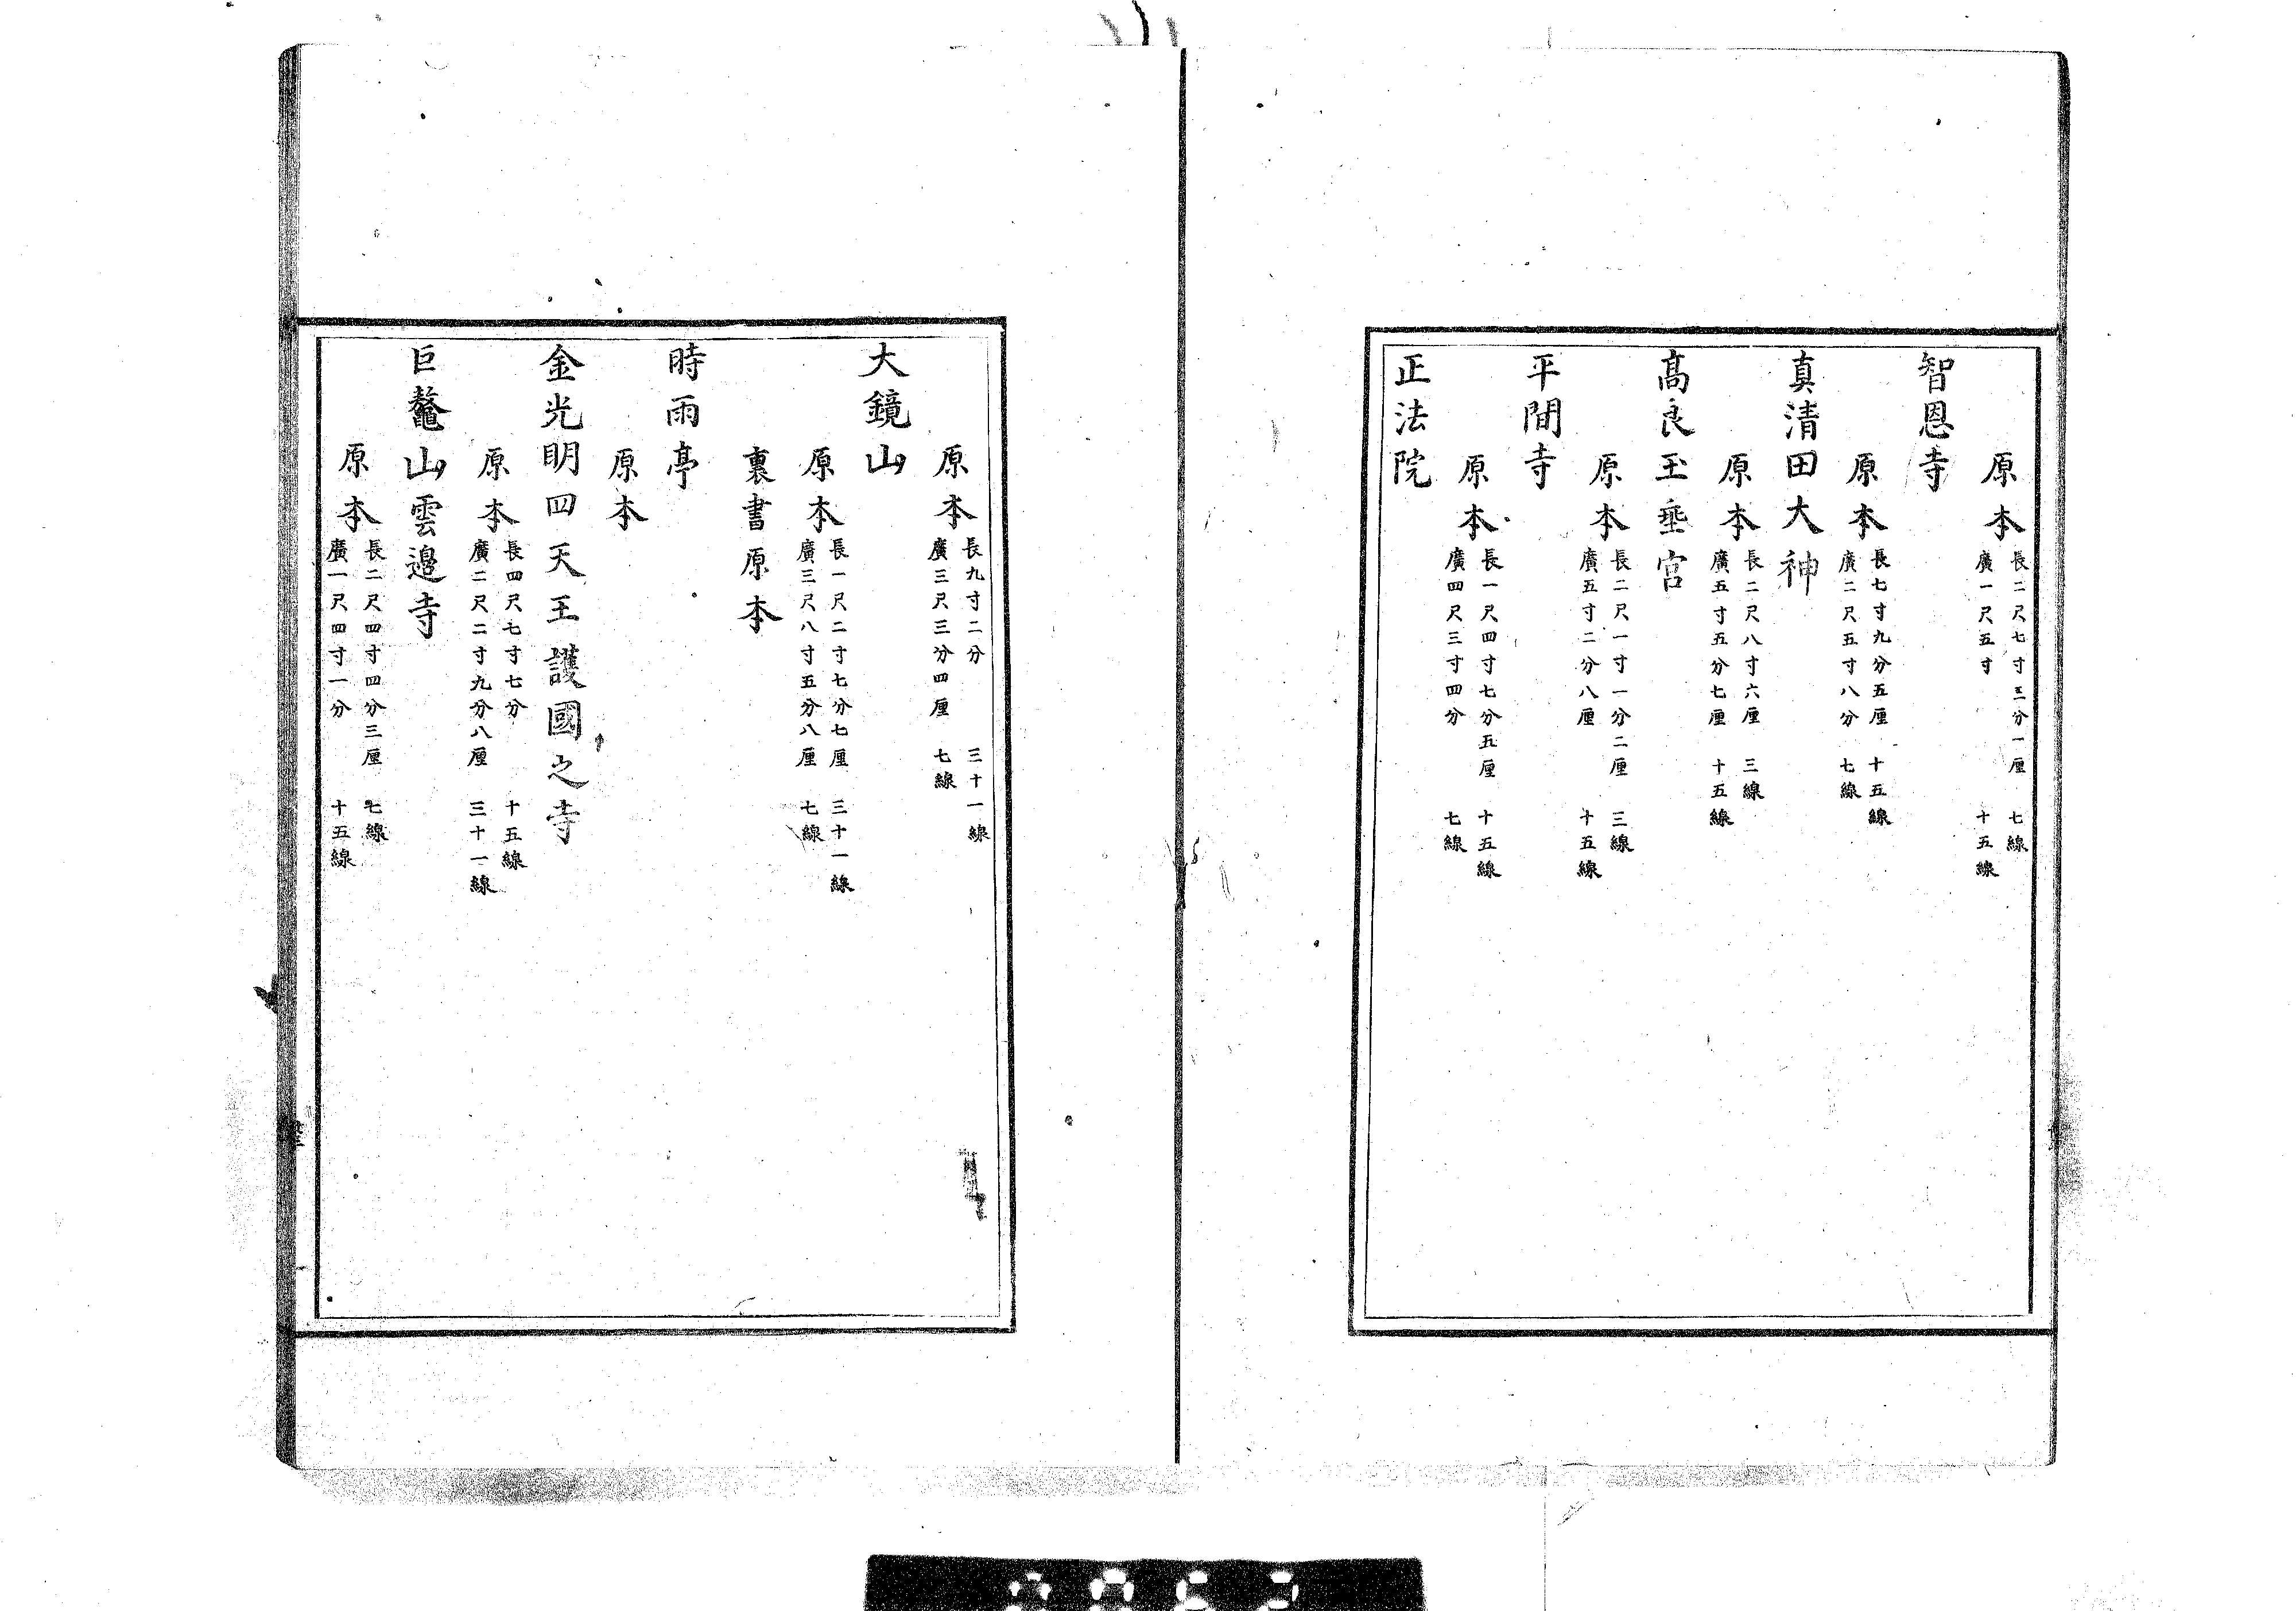 原本 長二尺七寸三分一厘 七線
廣一尺五寸 十五線
智恩寺
原本 長七寸九分五厘 十五線
廣二尺五寸八分 七線
真清田大神
原本 長二尺八寸六厘 三線
廣五寸五分七厘 十五線
髙良玉垂宮
原本 長二尺一寸一分二厘 三線
廣五寸二分八厘 十五線
平間寺
原本 長一尺四寸七分五厘 十五線
廣四尺三寸四分 七線
正法院
原本 長九寸二分 三十一線
廣三尺三分四厘 七線
大鏡山
原本 長一尺二寸七分七厘 三十一線
廣三尺八寸五分八厘 七線
裏書原本
時雨亭
原本
金光明四天王護國之寺
原本 長四尺七寸七分 十五線
廣二尺二寸九分八厘 三十一線
巨鼇山雲邉寺
原本 長二尺四寸四分三厘 七線
廣一尺四寸一分 十五線